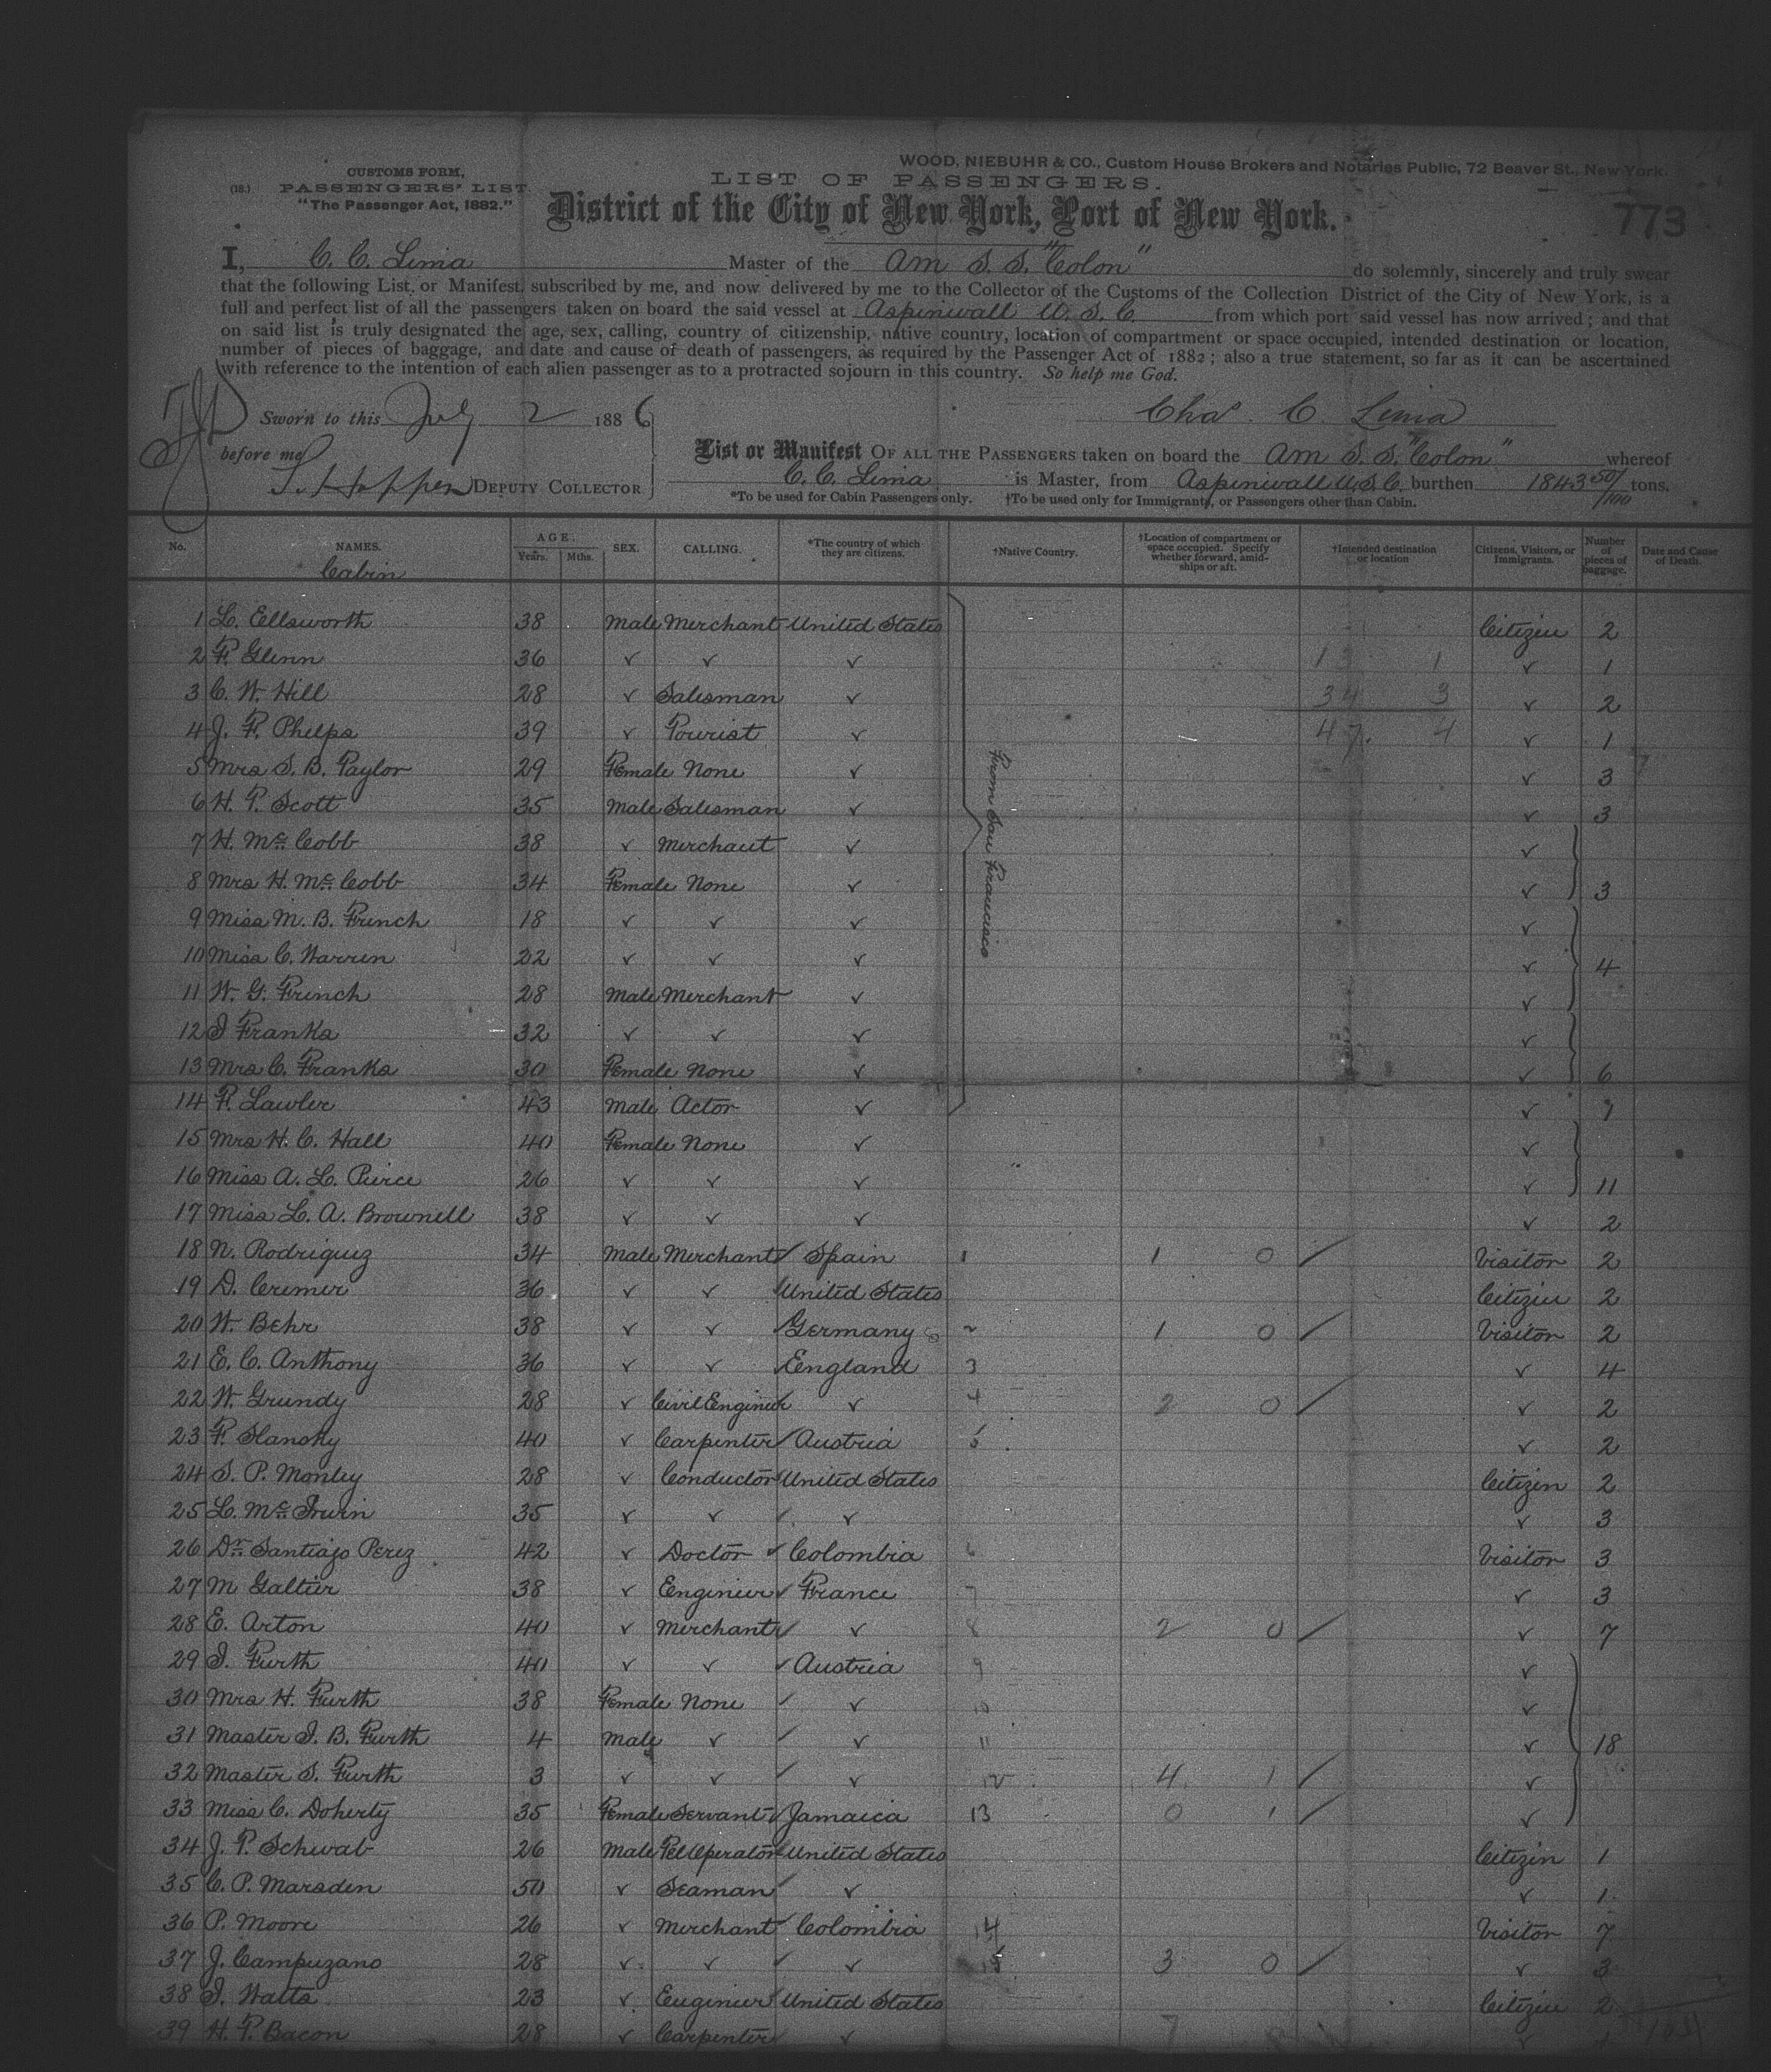 WOOD, NIEBUHR & CO., Custom House Brokers and Notaries Public, 72 Beaver St., New York.
CUSTOMS FORM,
(18.) PASSENGERS' LIST.
"The Passenger Act, 1882."
LIST OF PASSENGERS.
District of the City of New York, Port of New York.
773
I, C. C. Lima Master of the Am S. S. "Colon" do solemnly, sincerely and truly swear
that the following List, or Manifest, subscribed by me, and now delivered by me to the Collector of the Customs of the Collection District of the City of New York, is a
full and perfect list of all the passengers taken on board the said vessel at Aspinwall U. S. C. from which port said vessel has now arrived; and that
on said list is truly designated the age, sex, calling, country of citizenship, native country, location of compartment or space occupied, intended destination or location,
number of pieces of baggage, and date and cause of death of passengers, as required by the Passenger Act of 1882; also a true statement, so far as it can be ascertained
with reference to the intention of each alien passenger as to a protracted sojourn in this country. So help me God.
Sworn to this July 2 1886
Chas. C. Lima
before me
List or Manifest OF ALL THE PASSENGERS taken on board the Am S. S. "Colon" whereof
DEPUTY COLLECTOR
C. C. Lima is Master, from Aspinwall U.S.C. burthen 1843 50/100 tons.
*To be used for Cabin Passengers only. †To be used only for Immigrants, or Passengers other than Cabin.
No. NAMES. AGE. Years. Mths. SEX. CALLING. *The country of which they are citizens. †Native Country. †Location of compartment or space occupied. Specify whether forward, amidships or aft. †Intended destination or location Citizens, Visitors, or Immigrants. Number of pieces of baggage. Date and Cause of Death.
Cabin
From San Francisco
1 L. Ellsworth 38 Male Merchant United States Citizen 2
2 F. Glenn 36 ✓ ✓ ✓ 13 1 ✓ 1
3 C. W. Hill 28 ✓ Salesman ✓ 34 3 ✓ 2
4 J. F. Phelps 39 ✓ Tourist ✓ 47. 4 ✓ 1
5 Mrs S. B. Taylor 29 Female None ✓ ✓ 3
6 H. T. Scott 35 Male Salesman ✓ ✓ 3
7 H. Mc Cobb 38 ✓ Merchant ✓ ✓
8 Mrs H. Mc Cobb 34 Female None ✓ ✓ 3
9 Miss M. B. French 18 ✓ ✓ ✓ ✓
10 Miss C. Warren 22 ✓ ✓ ✓ ✓ 4
11 W. G. French 28 Male Merchant ✓ ✓
12 I Franks 32 ✓ ✓ ✓ ✓
13 Mrs C. Franks 30 Female None ✓ ✓ 6
14 F. Lawler 43 Male Actor ✓ ✓
15 Mrs H. C. Hall 40 Female None ✓ ✓
16 Miss A. L. Pierce 26 ✓ ✓ ✓ ✓ 11
17 Miss L. A. Brownell 38 ✓ ✓ ✓ ✓ 2
18 N. Rodriguez 34 Male Merchant Spain 1 1 0 Visitor 2
19 D. Cremer 36 ✓ ✓ United States Citizen 2
20 W. Behr 38 ✓ ✓ Germany 2 1 0 Visitor 2
21 E. C. Anthony 36 ✓ ✓ England 3 ✓ 4
22 W. Grundy 28 ✓ Civil Engineer ✓ 4 2 0 ✓ 2
23 F. Slansky 40 ✓ Carpenter Austria 5 ✓ 2
24 S. P. Monley 28 ✓ Conductor United States Citizen 2
25 L. Mc Irwin 35 ✓ ✓ ✓ ✓ 3
26 Dr. Santiago Perez 42 ✓ Doctor Colombia 6 Visitor 3
27 M Galtier 38 ✓ Engineer France 7 ✓ 3
28 E. Arton 40 ✓ Merchant ✓ 8 2 0 ✓ 7
29 I. Furth 40 ✓ ✓ Austria 9 ✓
30 Mrs H. Furth 38 Female None ✓ 10 ✓
31 Master I. B. Furth 4 Male ✓ ✓ 11 ✓ 18
32 Master S. Furth 3 ✓ ✓ ✓ 12 4 1 ✓
33 Miss C. Doherty 35 Female Servant Jamaica 13 0 1 ✓
34 J. T. Schwab 26 Male Tel Operator United States Citizen 1
35 C. P. Marsden 50 ✓ Seaman ✓ ✓ 1
36 P. Moore 26 ✓ Merchant Colombia 14 Visitor 7
37 J. Campuzano 28 ✓ ✓ ✓ 15 3 0 ✓ 3
38 I. Watts 23 ✓ Engineer United States Citizen 2
39 H. T. Bacon 28 ✓ Carpenter ✓ 7 ✓